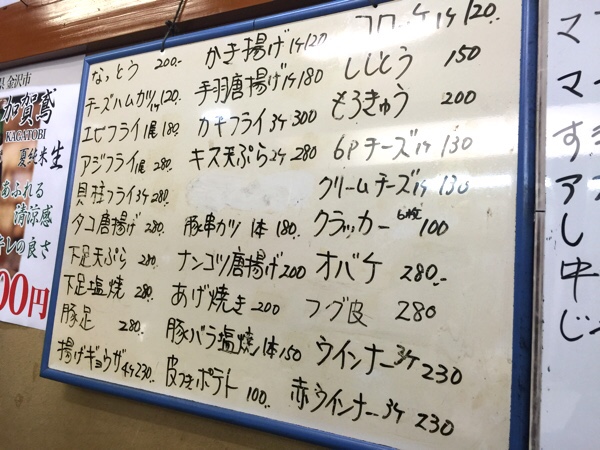 県 金沢市
加賀鳶
KAGATOBI
夏純米生
あふれる
清涼感
キレの良さ
00円
なっとう 200.-
チーズハムカツ1ケ120.
エビフライ1尾180.
アジフライ1尾280.
貝柱フライ3ケ280.
タコ唐揚げ280.
下足天ぷら280.
下足塩焼280.
豚足280.
揚げギョウザ4ケ230.
かき揚げ1ケ120
手羽唐揚げ1ケ180
カキフライ3ケ300
キス天ぷら2ケ280
豚串カツ1本180.
ナンコツ唐揚げ200
あげ焼き200
豚バラ塩焼1本150
皮つきポテト100.
コロッケ1ケ120.
しじとう150
もろきゅう200
6Pチーズ1ケ130
クリームチーズ1ケ130
クラッカー6枚100
オバケ280.-
フグ皮280
ウインナー3ケ230
赤ウインナー3ケ230
マ
マ
す
ア
し
中
じ